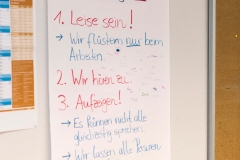 1. Leise sein!
→ Wir flüstern nur beim
Arbeiten.
2. Wir hören zu.
3. Aufzeigen!
→ Es können nicht alle
gleichzeitig sprechen.
→ Wir lassen alle